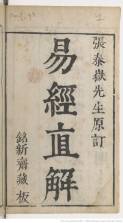 張泰嶽先生原訂
易經直解
銘新齋藏板